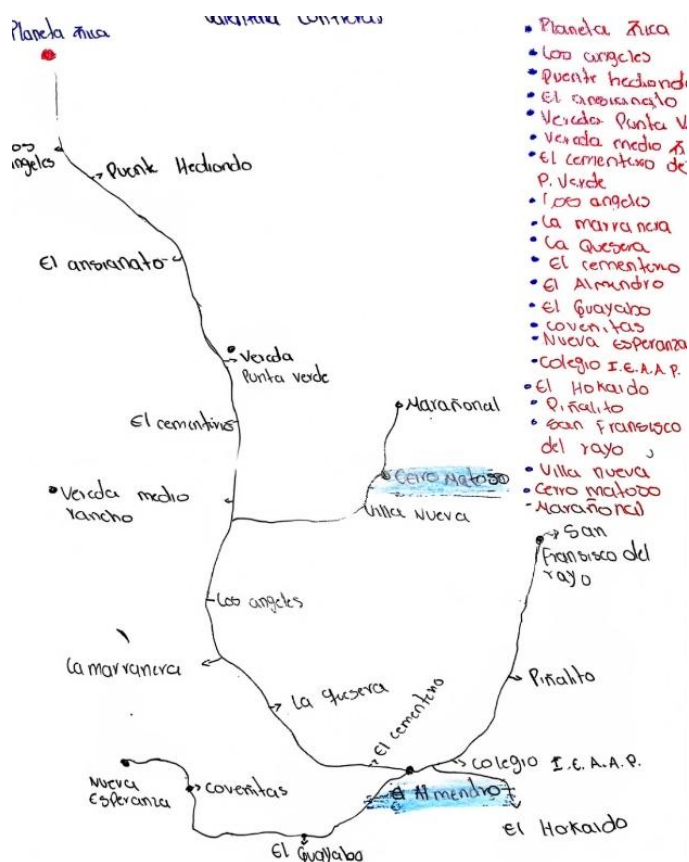 Planeta Rica
Valentina Contreras
Los
angeles
Puente Hediondo
El ansianato
Vereda
Punta verde
El cementirio
Marañonal
Cerro Matoso
Villa Nueva
Vereda medio
rancho
San
Fransisco del
rayo
Los angeles
La marranera
La quesera
El cementerio
Piñalito
Colegio I.E.A.A.P.
El Almendro
El Hokaido
Nueva
Esperanza
Covenitas
El Guayabo
Planeta Rica
Los angeles
Puente hediondo
El ansianato
Vereda Punta V
Vereda medio R
El cementerio de
P. Verde
Los angeles
La marranera
La Quesera
El cementerio
El Almendro
El Guayabo
Covenitas
Nueva Esperanza
Colegio I.E.A.A.P.
El Hokaido
Piñalito
San Fransisco
del rayo
Villa nueva
Cerro matoso
Marañonal